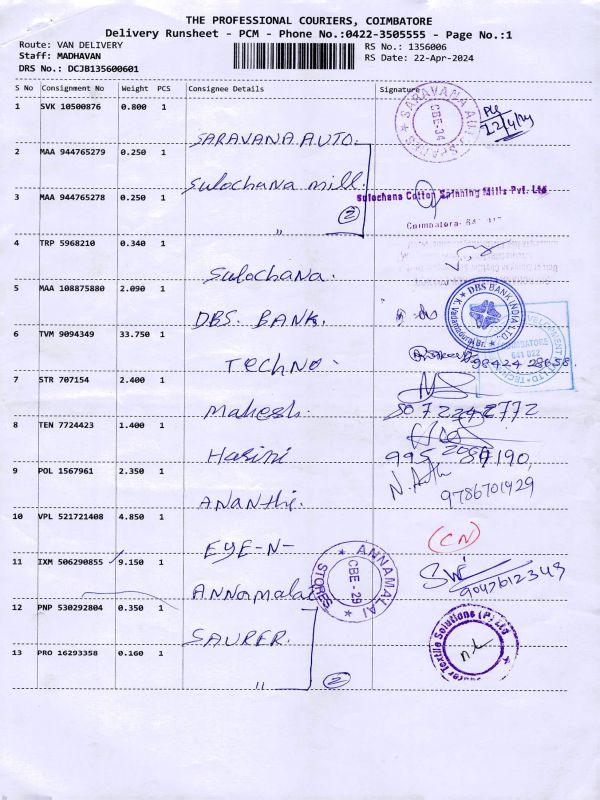 THE PROFESSIONAL COURIERS, COIMBATORE
Delivery Runsheet - PCM - Phone No.:0422-3505555 - Page No.:1
Route: VAN DELIVERY
RS No.: 1356006
Staff: MADHAVAN
RS Date: 22-Apr-2024
DRS No.: DCJB135600601
S No Consignment No Weight PCS Consignee Details Signature
1 SVK 10500876 0.800 1 SARAVANA AUTO.
SARAVANA AUTO SPARES
CBE-34
22/4/24
2 MAA 944765279 0.250 1 Sulochana mill.
3 MAA 944765278 0.250 1 " 2
Sulochana Cotton Spinning Mills Pvt. Ltd
4 TRP 5968210 0.340 1 Sulochana.
5 MAA 108875880 2.090 1 DBS. BANK.
DBS BANK INDIA LTD.
6 TVM 9094349 33.750 1 TECHNO
98424 28658.
7 STR 707154 2.400 1 Mahesh.
8072242772
8 TEN 7724423 1.400 1 Harini
9 POL 1567961 2.350 1 Ananthi.
9786701429
10 VPL 521721408 4.850 1 EYE-N- (CN)
11 IXM 506290855 9.150 1 Annamalai
ANNAMALAI STORES
CBE-29
9047612349
12 PNP 530292804 0.350 1 SAURER.
Textile Solutions (P) Ltd
13 PRO 16293358 0.160 1 " 2